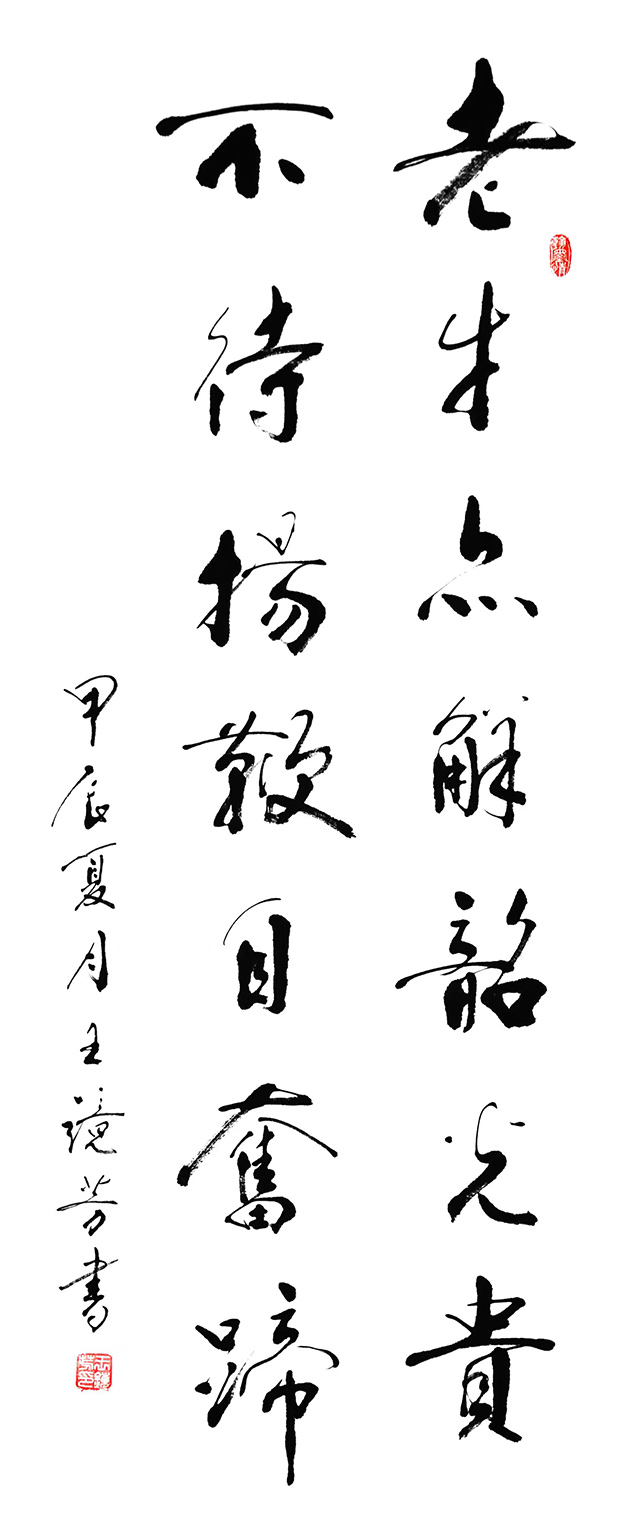 老牛亦解韶光貴
不待揚鞭自奮蹄
甲辰夏月王鏡芳書